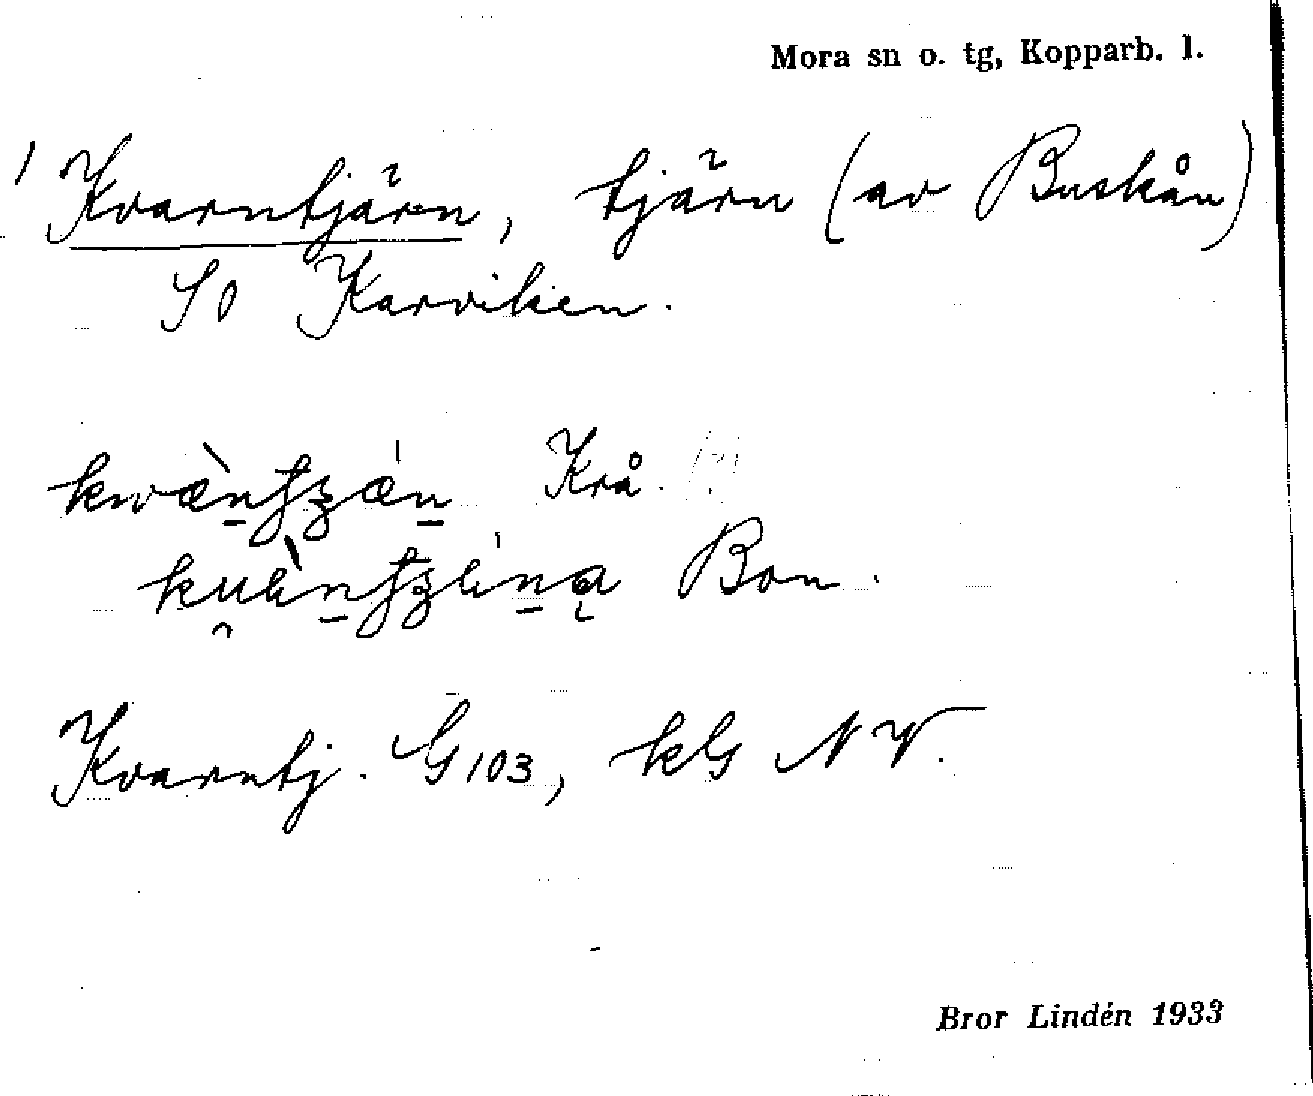 Mora sn o. tg, Kopparb. l.
/ Kvarntjärn, tjärn (av Buskån)
SO Karviken.
Krå.
Bon.
Kvarntj. G 103, kG NV.
Bror Lindén 1933